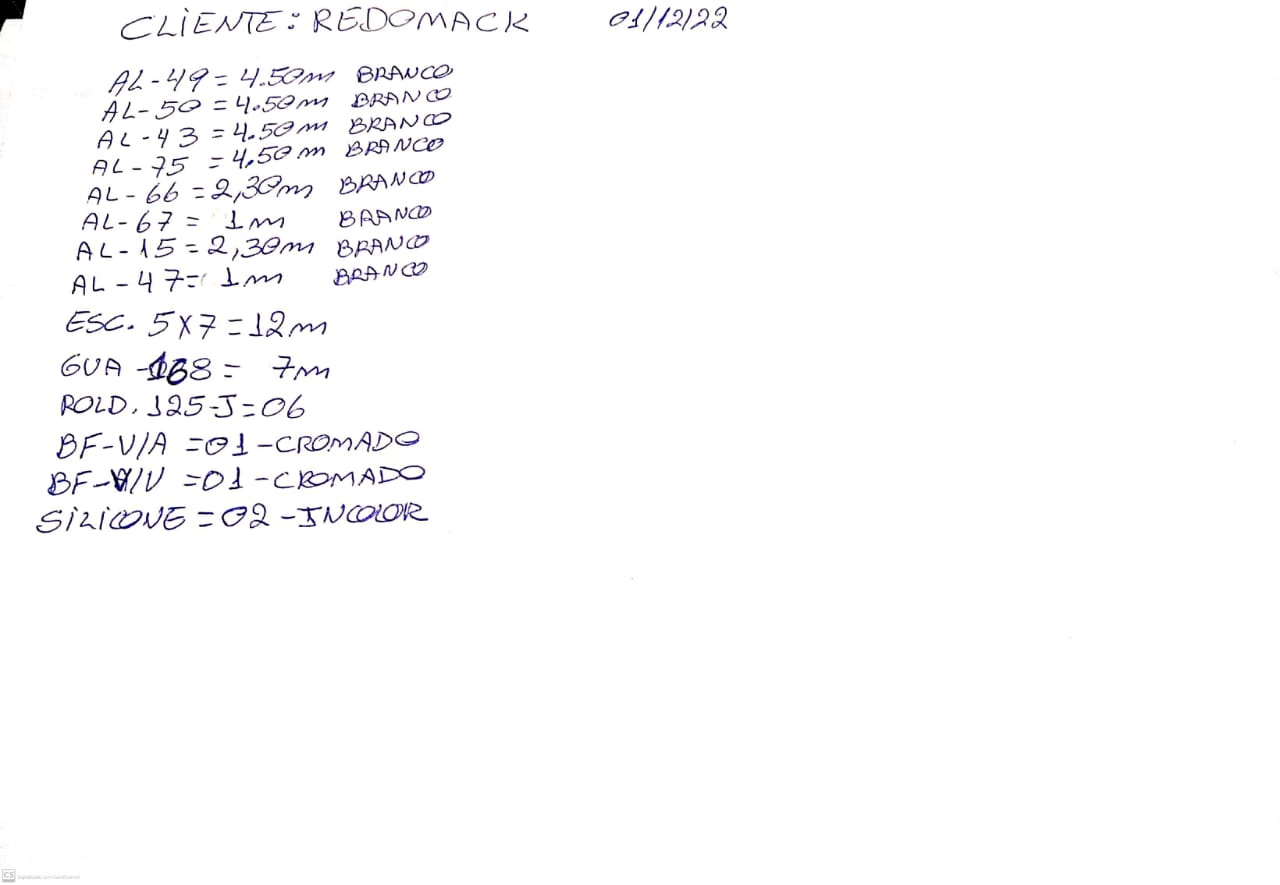 CLIENTE: REDOMACK 01/12/22
AL-49 = 4.50m BRANCO
AL-50 = 4.50m BRANCO
AL-43 = 4.50m BRANCO
AL-75 = 4,50m BRANCO
AL-66 = 2,30m BRANCO
AL-67 = 1m BRANCO
AL-15 = 2,30m BRANCO
AL-47 = 1m BRANCO
ESC. 5X7 = 12m
GUA -168 = 7m
ROLD. 125-J = 06
BF-V/A = 01 - CROMADO
BF-V/V = 01 - CROMADO
SILICONE = 02 - INCOLOR
CS